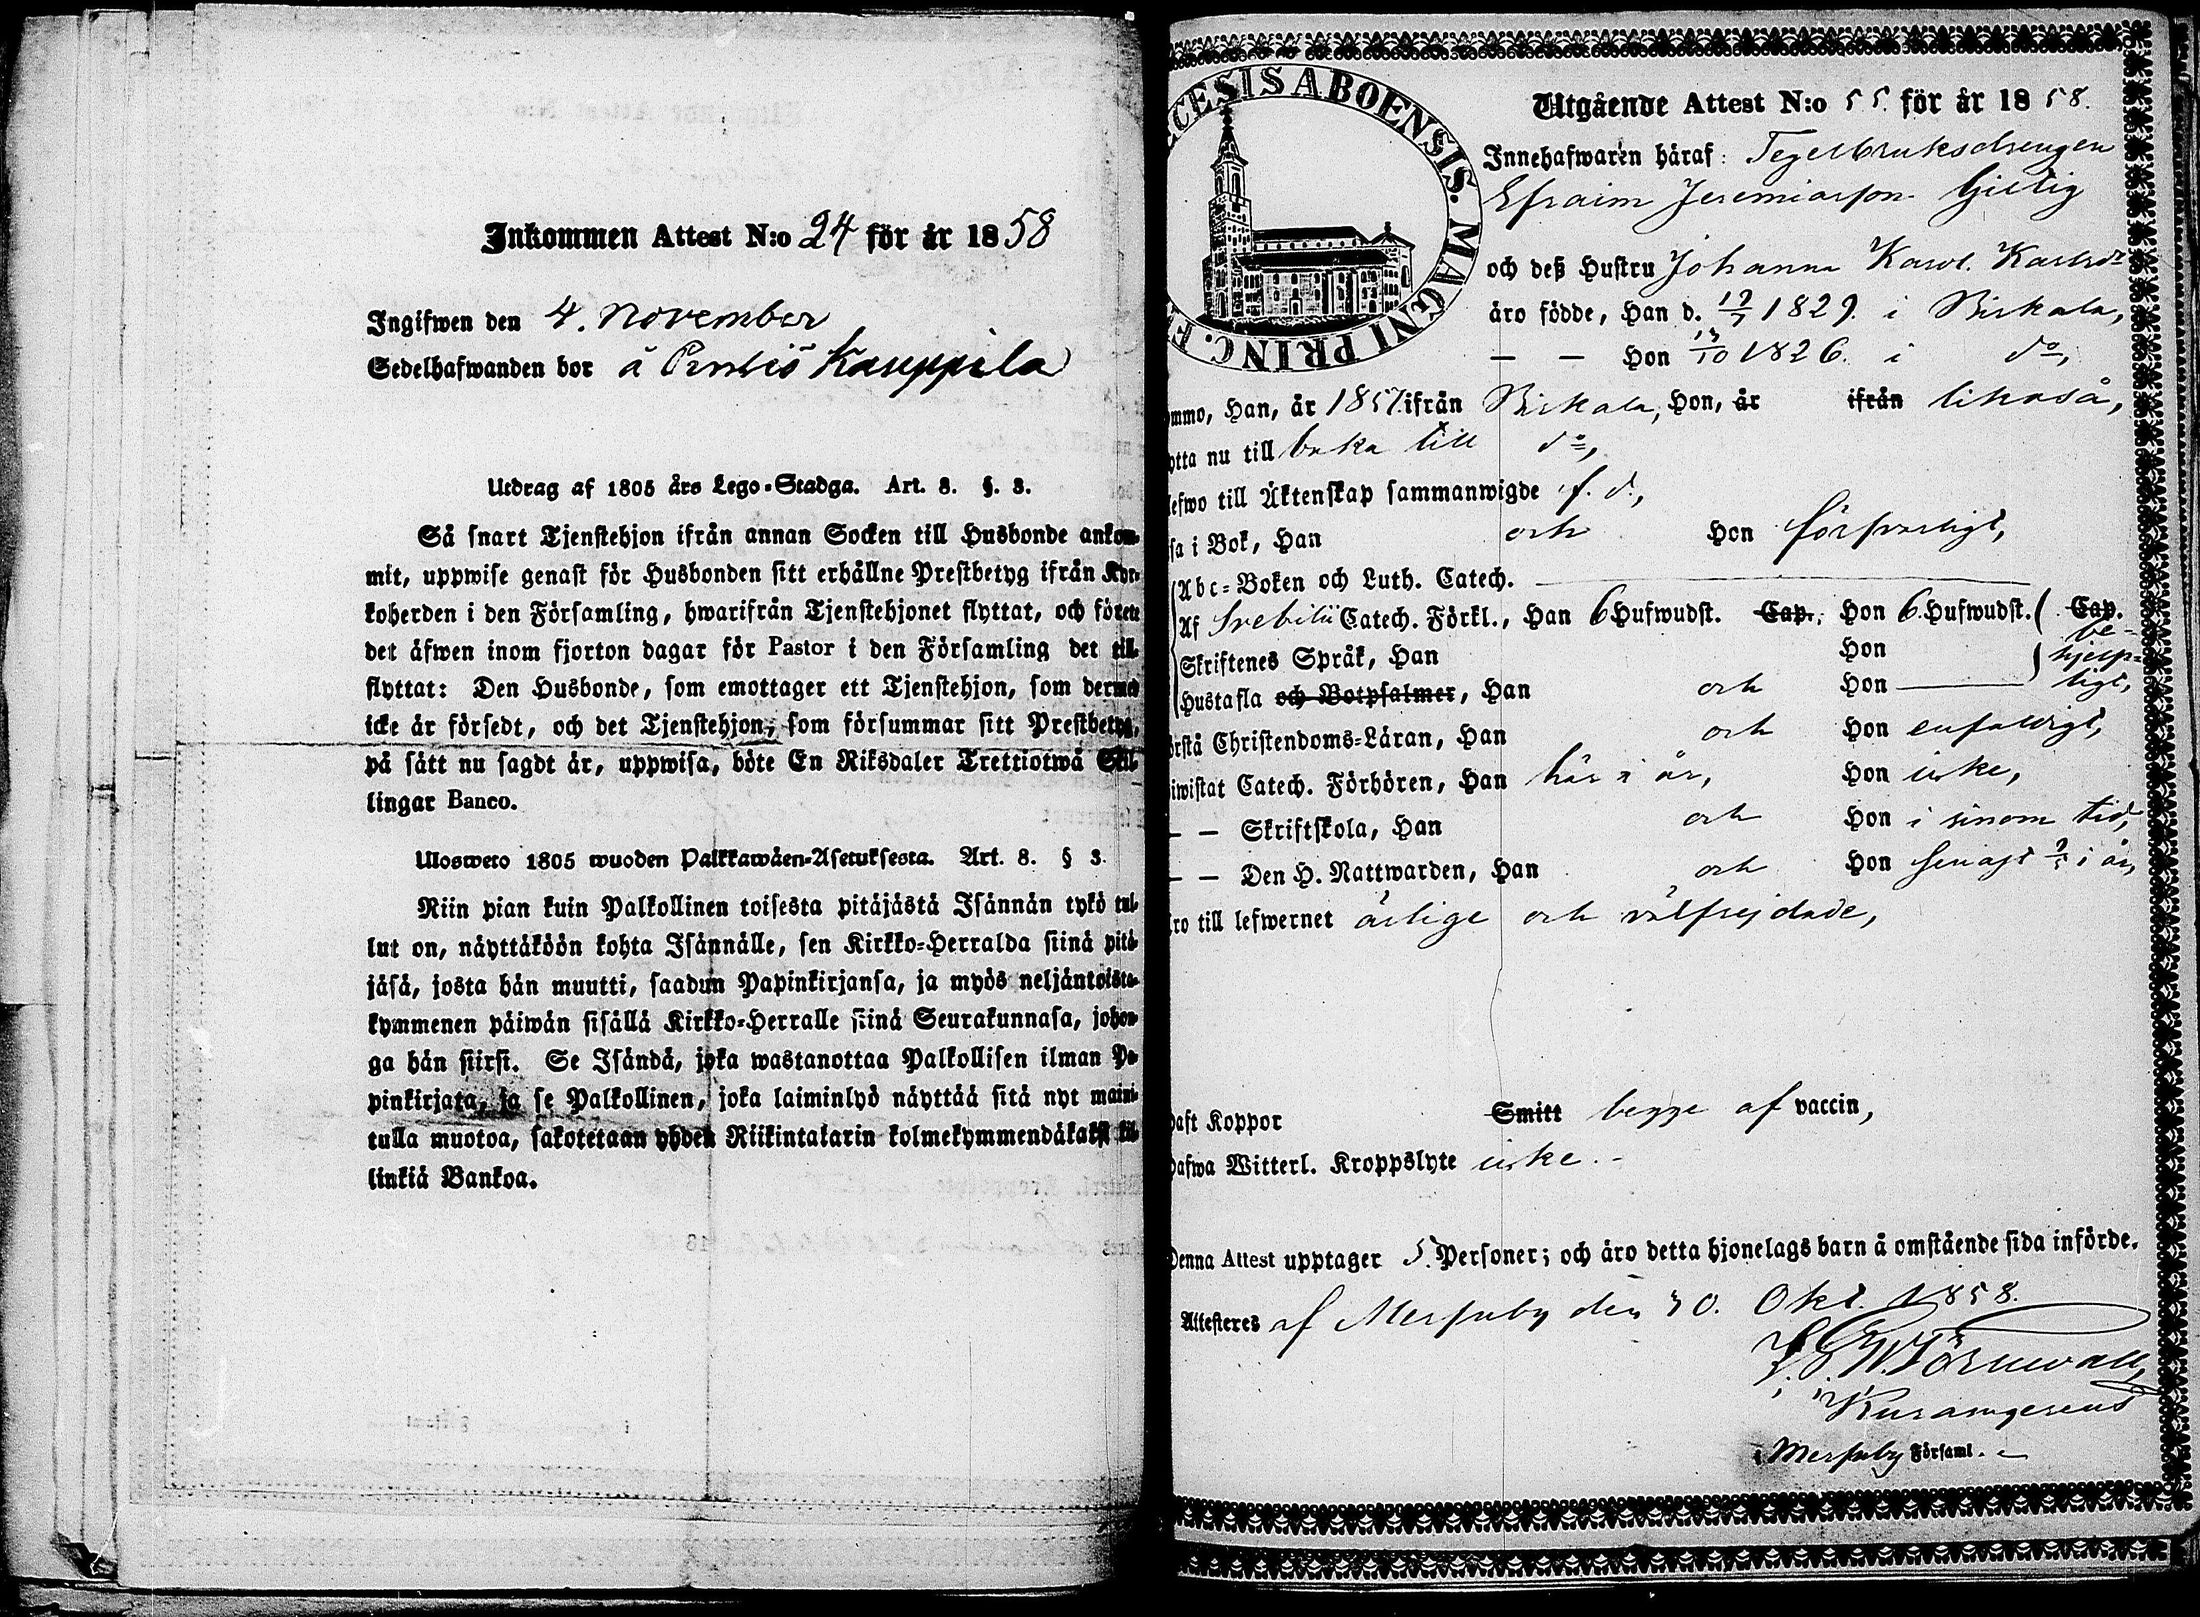 Inkommen Attest N:o 24 för år 1858
Ingifwen den 4. November
Sedelhafwanden bor å Kauppila
Utdrag af 1805 års Lego-Stadga. Art. 8. §. 3.
Så snart Tjenstehjon ifrån annan Socken till Husbonde ankom-
mit, uppwise genast för Husbonden sitt erhållne Prestbetyg ifrån Kyr-
koherden i den Församling, hwarifrån Tjenstehjonet flyttat, och förete
det äfwen inom fjorton dagar för Pastor i den Församling det till-
flyttat: Den Husbonde, som emottager ett Tjenstehjon, som dermed
icke är försedt, och det Tjenstehjon, som försummar sitt Prestbetyg,
på sätt nu sagdt är, uppwisa, böte En Riksdaler Trettiotwå Skil-
lingar Banco.
Ulosweto 1805 wuoden Palkkawäen-Asetuksesta. Art. 8. § 3.
Niin pian kuin Palkollinen toisesta pitäjästä Isännän tykö tul-
lut on, näyttäköön kohta Isännälle, sen Kirkko-Herralda siinä pitä-
jäsä, josta hän muutti, saadun Papinkirjansa, ja myös neljäntoista-
kymmenen päiwän sisällä Kirkko-Herralle siinä Seurakunnasa, johon-
ga hän siirsi. Se Isändä, joka wastanottaa Palkollisen ilman Pa-
pinkirjata, ja se Palkollinen, joka laiminlyö näyttää sitä nyt maini-
tulla muotoa, sakotetaan yhden Riikintalarin kolmekymmendäkaksi kil-
linkiä Bankoa.
CESIS ABOENSIS. MAGNI PRINC. F
Utgående Attest N:o 55. för år 1858.
Innehafwaren häraf: Tegelbruksdrengen
Efraim Jeremiasson Gellig
och deß Hustru Johanna Karol. Karlsdr
äro födde, Han d. 19/7 1829. i Birkala,
— — Hon 13/10 1826. i do,
ommo, Han, år 1857 ifrån Birkala, Hon, år ifrån likaså,
ytta nu till baka till do,
lefwo till Äktenskap sammanwigde f. d.,
sa i Bok, Han och Hon försvarligt,
Abc-Boken och Luth. Catech.
Af Svebilii Catech. Förkl., Han 6 Hufwudst. Cap., Hon 6. Hufwudst. Cap.
be-
Skriftenes Språk, Han Hon hjelp-
Hustafla och Botpsalmer, Han och Hon ligt,
örstå Christendoms-Läran, Han och Hon enfaldigt,
iwistat Catech. Förhören, Han här i år, Hon icke,
— — Skriftskola, Han och Hon i sinom tid,
— — Den H. Nattwarden, Han och Hon senast 2/5 i år,
ro till lefwernet ärlige och välfrejdade,
aft Koppor Smitt begge af vaccin,
afwa Witterl. Kroppslyte icke. -
Denna Attest upptager 5. Personer; och äro detta hjonelags barn å omstående sida införde.
Attesteres af Messuby den 30. Okt. 1858.
Törnwall,
i Messuby Församl. -